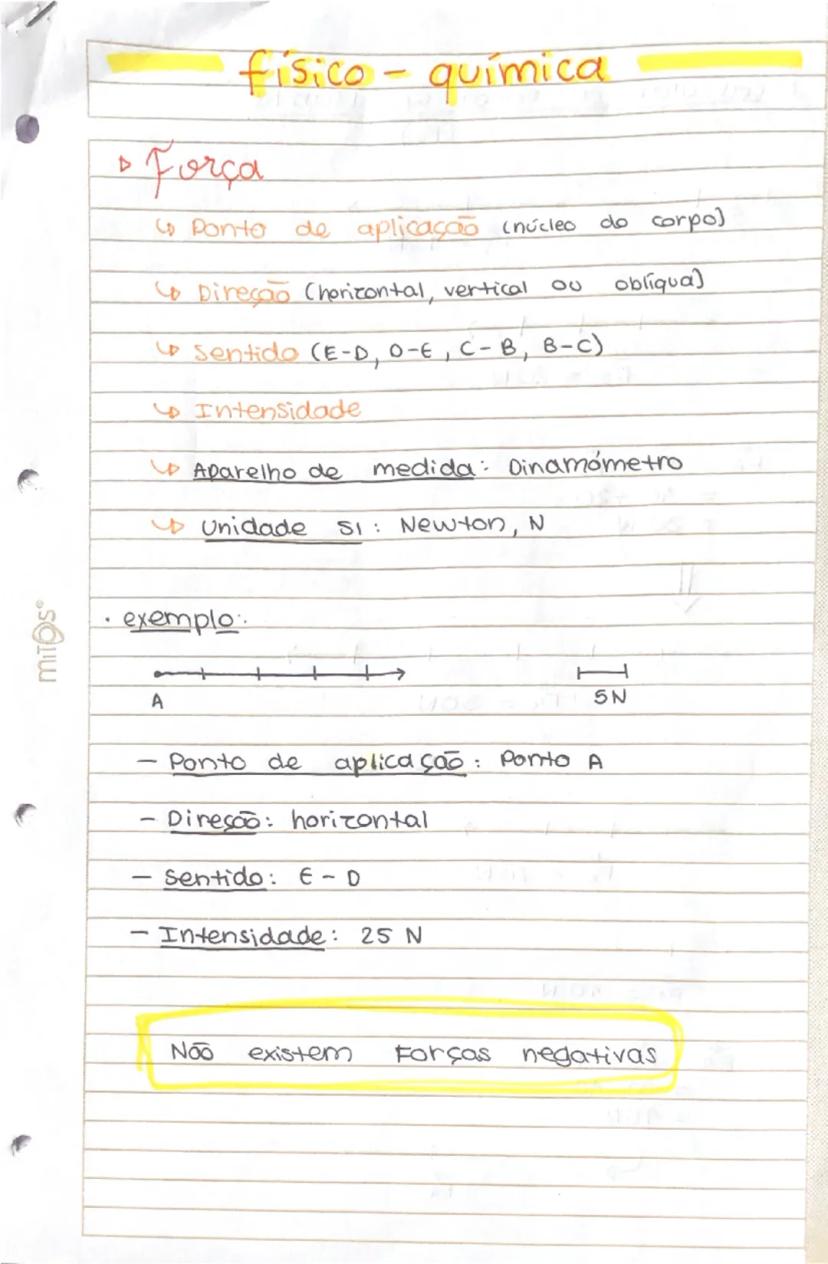 físico - química
Força
Ponto de aplicação (núcleo do corpo)
Direção (horizontal, vertical ou oblíqua)
Sentido (E-D, D-E, C-B, B-C)
Intensidade
Aparelho de medida: Dinamómetro
Unidade SI: Newton, N
mitos®
• exemplo:
A 5N
- Ponto de aplicação: Ponto A
- Direção: horizontal
- Sentido: E - D
- Intensidade: 25 N
Não existem Forças negativas